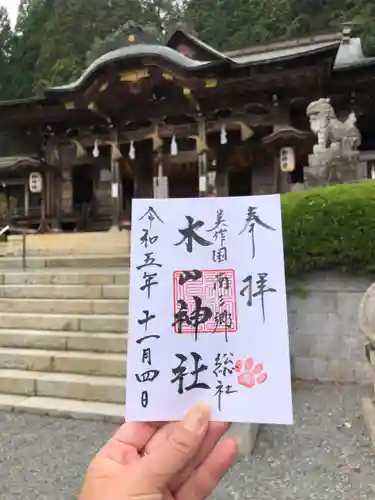 奉拝
美作国南三郷総社
木山神社
令和五年十一月四日